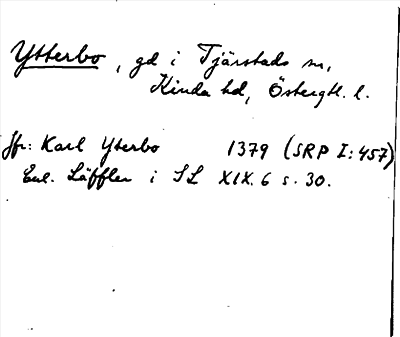 Ytterbo, gd i Tjärstads sn,
Kinda hd, Östergtl. l.
Jfr: Karl Yterbo 1379 (SRP I:457)
Enl. Läffler i SL XIX.6 s. 30.